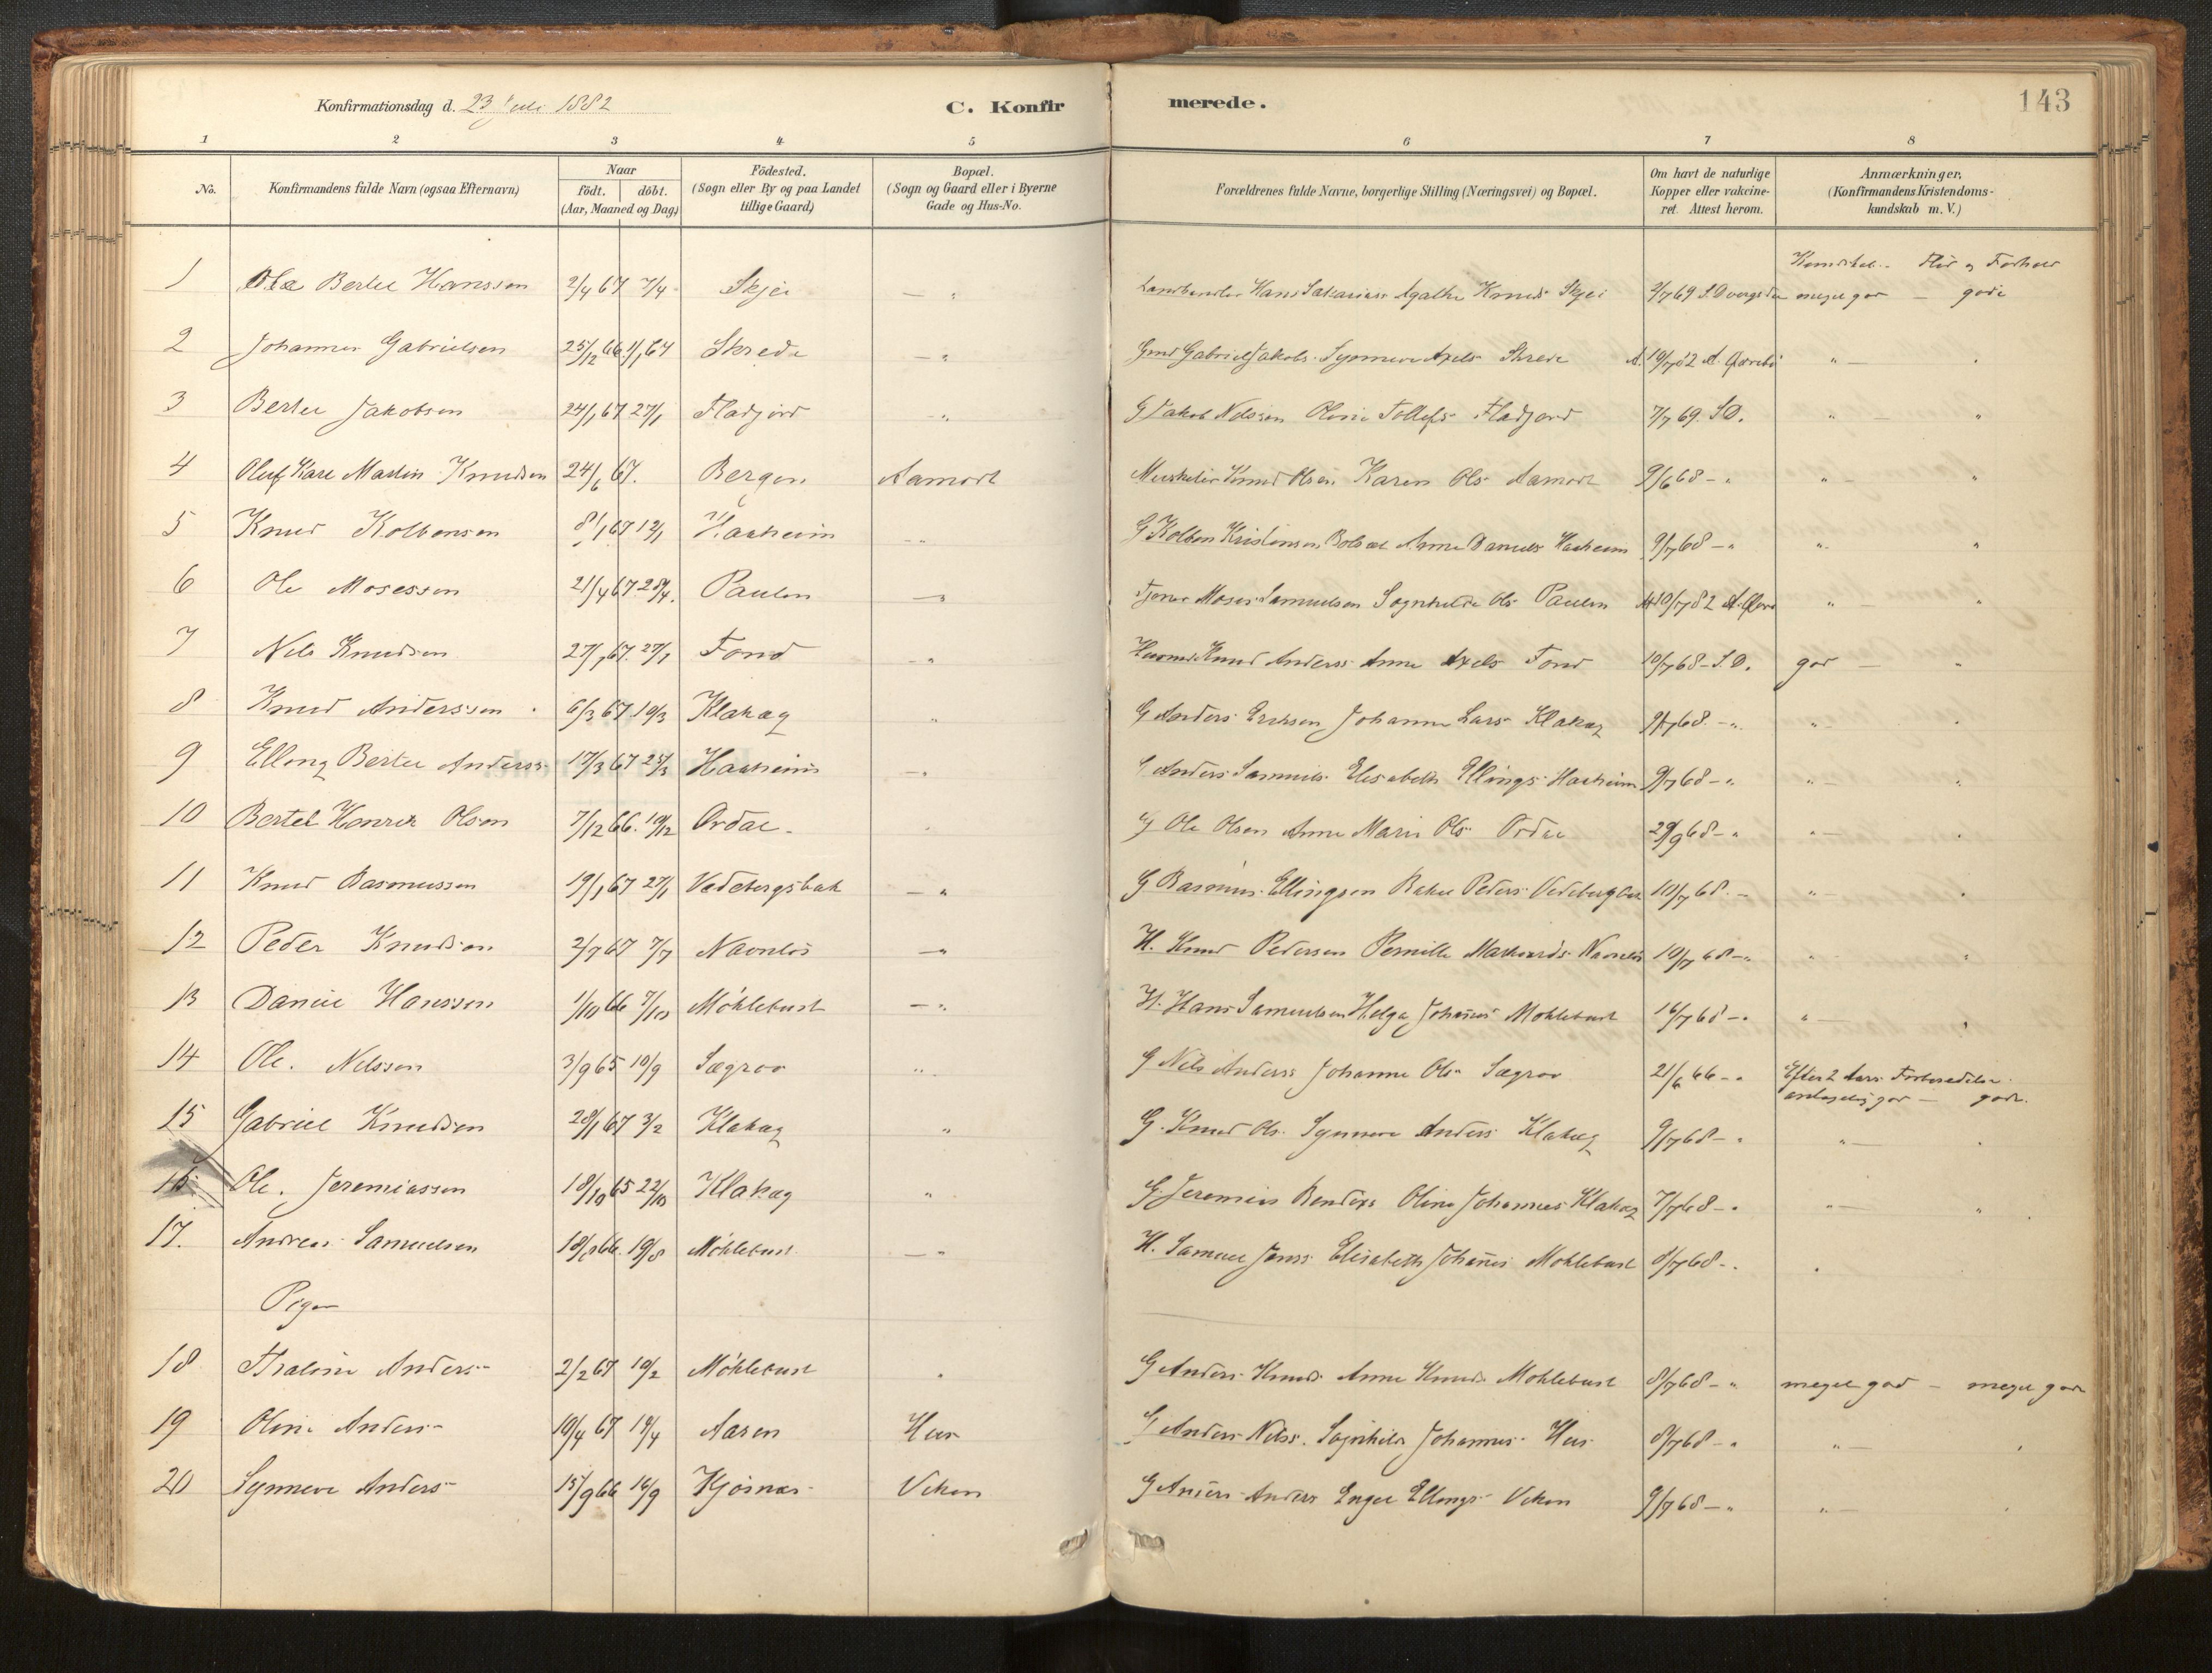 Konfirmationsdag d. 23 Juli 1882
C. Konfirmerede.
143
1 2 3 4 5 6 7 8
No.
Konfirmandens fulde Navn (ogsaa Efternavn)
Naar
födt. döbt.
(Aar, Maaned og Dag)
Födested.
(Sogn eller By og paa Landet
tillige Gaard)
Bopæl.
(Sogn og Gaard eller i Byerne
Gade og Hus-No.
Forældrenes fulde Navne, borgerlige Stilling (Næringsvei) og Bopæl.
Om havt de naturlige
Kopper eller vakcine-
ret. Attest herom.
Anmærkninger,
(Konfirmandens Kristendoms-
kundskab m. V.)
Kundskab. - Flid og Forhold
1 Ole Bertel Hanssen 2/4 67 7/4 Skjei — " Landhandler Hans Sakariass Agathe Knuds Skjei 2/7 69 meget god — gode
2 Johannes Gabrielsen 25/12 66 1/1 67 Skrede — " Gmd Gabriel Jakobs Synneve Axels Skrede A. 10/7 82 " —
3 Bertel Jakobsen 24/1 67 27/1 Fladjord — " G Jakob Nilssen Oline Tollefs Fladjord 7/7 69. S.D. " "
4 Oluf Karl Martin Knudsen 24/6 67. Bergen Aamodt Knud Olsen Karen Ols Aamodt 9/6 68 - " " - "
5 Knud Kolbensen 8/1 67 12/1 Haaheim - " G Kolben Kristensen Anne Daniels Haaheim 9/7 68 - " " "
6 Ole Mosessen 21/4 67. 28/4. Paulen — " Moses Samuelsen Sognhilde Ols Paulen 10/7 82 " — "
7 Nils Knudsen 27/1 67. 27/1 Fond — " Knud Anderss Anne Axels Fond 10/7 68 - S.D. god — "
8 Knud Anderssen 6/3 67 10/3 Klakeg " G Anders Erichsen Johanne Lars Klakeg 9/7 68. - " " -
9 Elling Bertel Anderss 17/3 67 25/3 Haaheim — " G Anders Samuels Elisabeth Ellings Haaheim 9/7 68 - " " — "
10 Bertel Henrik Olsen 7/12 66. 10/12 Ordal - " G Ole Olsen Anne Marie Ols Ordal 29/9 68 - " " —
11 Knud Rasmussen 19/1 67 27/1 Vedebergsbak — " G Rasmus Ellingsen Peders 10/7 68. - " -
12 Peder Knudsen 2/7 67 7/7 Navnlös — " H. Knud Pedersen Pernille Navnlös 10/7 68 - " " -
13 Daniel Hanssen 1/10 66 7/10 Möklebust — " H. Hans Samuelsen Helga Johanes Moklebust 16/7 68 - " " —
14 Ole. Nilssen 3/9 65 10/9 Sægrov " G Nils Anderss Johanne Ols Sægrov 21/6 66 - " Efter 2 Aars Forberedelse
god — gode.
15 Gabriel Knudsen 28/1 67 3/2 Klakeg " G. Knud Ols. Synneve Anders Klakeg 9/7 68 - " " —
16 Ole. Jeremiassen 18/10 65 22/10 Klakeg " G. Jeremias Oline Johannes Klakeg 7/7 68 - " " — "
17. Andreas Samuelsen 18/8 66. 19/8 Möklebust — " H. Samuel Janss Elisabeth Johanes Moklebust 8/7 68 - "
Piger
18 Thaline Anders - 2/2 67 10/2 Möklebust " G Anders Knuds Anne Knuds Moklebust 8/7 68 - " meget god — meget gode
19 Oline Anders - 10/4 67 14/4 Aasen Hus G Anders Nilss. Sognhilde Johannes Hus 8/7 68 - " " —
20 Synneve Anders - 15/9 66 16/9 Kjösnæs Viken G Anders Anders Ellings Viken 9/7 68 - " " —